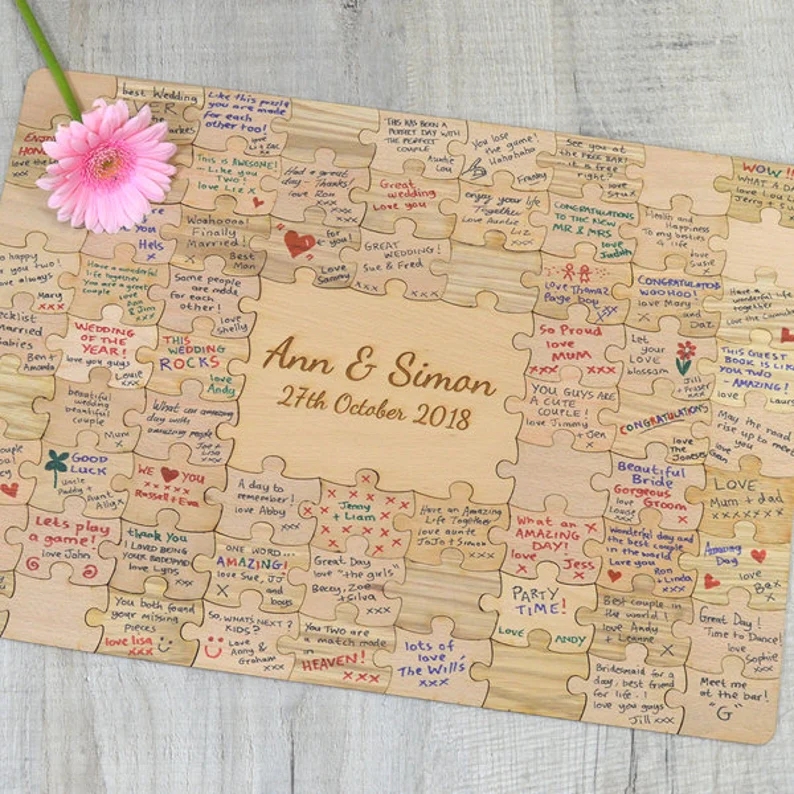 best Wedding
EVER
the
Like this puzzle
you are made
for each
other too!
love
THIS HAS BEEN A
PERFECT DAY WITH
THE PERFECT
COUPLE
Auntie
Lou
You lose
the game!
Hahahaha
Franky
See you at
the FREE BAR!
it is free
right?
love
Stu x
WOW!!
WHAT A DA
love Lou
Jerry
THIS IS AWESOME!
- Like you
TWO!
love Liz x
Had a great
day - Thanks!
love Ron
xxx
Great
wedding
Love you
enjoy your life
Together
love Auntie
Liz
xxx
CONGRATULATIONS
TO THE NEW
MR & MRS
love
Judith
Health and
Happiness
To my besties
4 life
love
Susie
x
you
Hels
Woohoooo!
Finally
Married!
Best
Man
for
you!
love
Sammy
xxx
GREAT
WEDDING!
Sue & Fred
happy
you two!
always
Mary
xxx
Have a wonderful
life together
You are a great
couple
love
& Jim
xxx
Some people
are made
for each
other!
love
Shelly
love Thomas
Page boy
xx
CONGRATULATIONS
WOOHOO!
love Mary
and
Daz
Have a
wonderful life
together
Love the
ecklist
arried
abies
Ben +
Amanda
WEDDING
OF THE
YEAR!
love you guys
Louise
xxx
THIS
WEDDING
ROCKS
love
Andy
Ann & Simon
27th October 2018
So Proud
love
MUM
xxx
Let
your
LOVE
blossom
Jill
+ Fraser
xxx
THIS GUEST
BOOK IS LIKE
YOU TWO
- AMAZING!
love
beautiful
wedding
beautiful
couple
Mum x
What an amazing
day with
amazing people
Joe +
Lisa
xxx
YOU GUYS
ARE A CUTE
COUPLE!
love Jimmy
+ Jen
x
CONGRATULATIONS
love
The Joneses
May the road
rise up to meet
you
GOOD
LUCK
uncle
Paddy +
Aunt
Ally x
WE YOU
xxxxx
Russell + Eva
A day to
remember!
love Abby
xxx
Jenny
+ Liam
Have an Amazing
Life Together
love aunte
JoJo + Simon
xxx
Beautiful
Bride
Gorgeous
Groom
love
Louise
xxx
LOVE
Mum + dad
xxxxxxx
Lets play
a game!
love John
thank you
I LOVED BEING
YOUR BRIDESMAID
love Lyns
xxx
ONE WORD...
AMAZING!
love Sue, JJ
and
boys
x
Great Day
love "the girls"
Beccy, Zoe
+ Silva
xxx
What an
AMAZING
DAY!
love
Jess
xxx
Wonderful day and
the best couple
in the world
Love you
Ron
+ Linda
xxx
Amazing
Day
love
Bex
x
You both found
your missing
pieces
love lisa
xxx
So, WHATS NEXT?
KIDS?
Love
Anny &
Graham
xxx
You TWO are
a match made
in
HEAVEN!
xxx
lots of
love
The Will's
xxx
PARTY
TIME!
LOVE ANDY
Best couple in
the world!
love Andy
+ Leanne
x
Great Day!
Time to Dance!
love
Sophie
xxx
Bridesmaid for a
day, best friend
for life!
love you guys
Jill xxx
Meet me
at the bar!
"G"